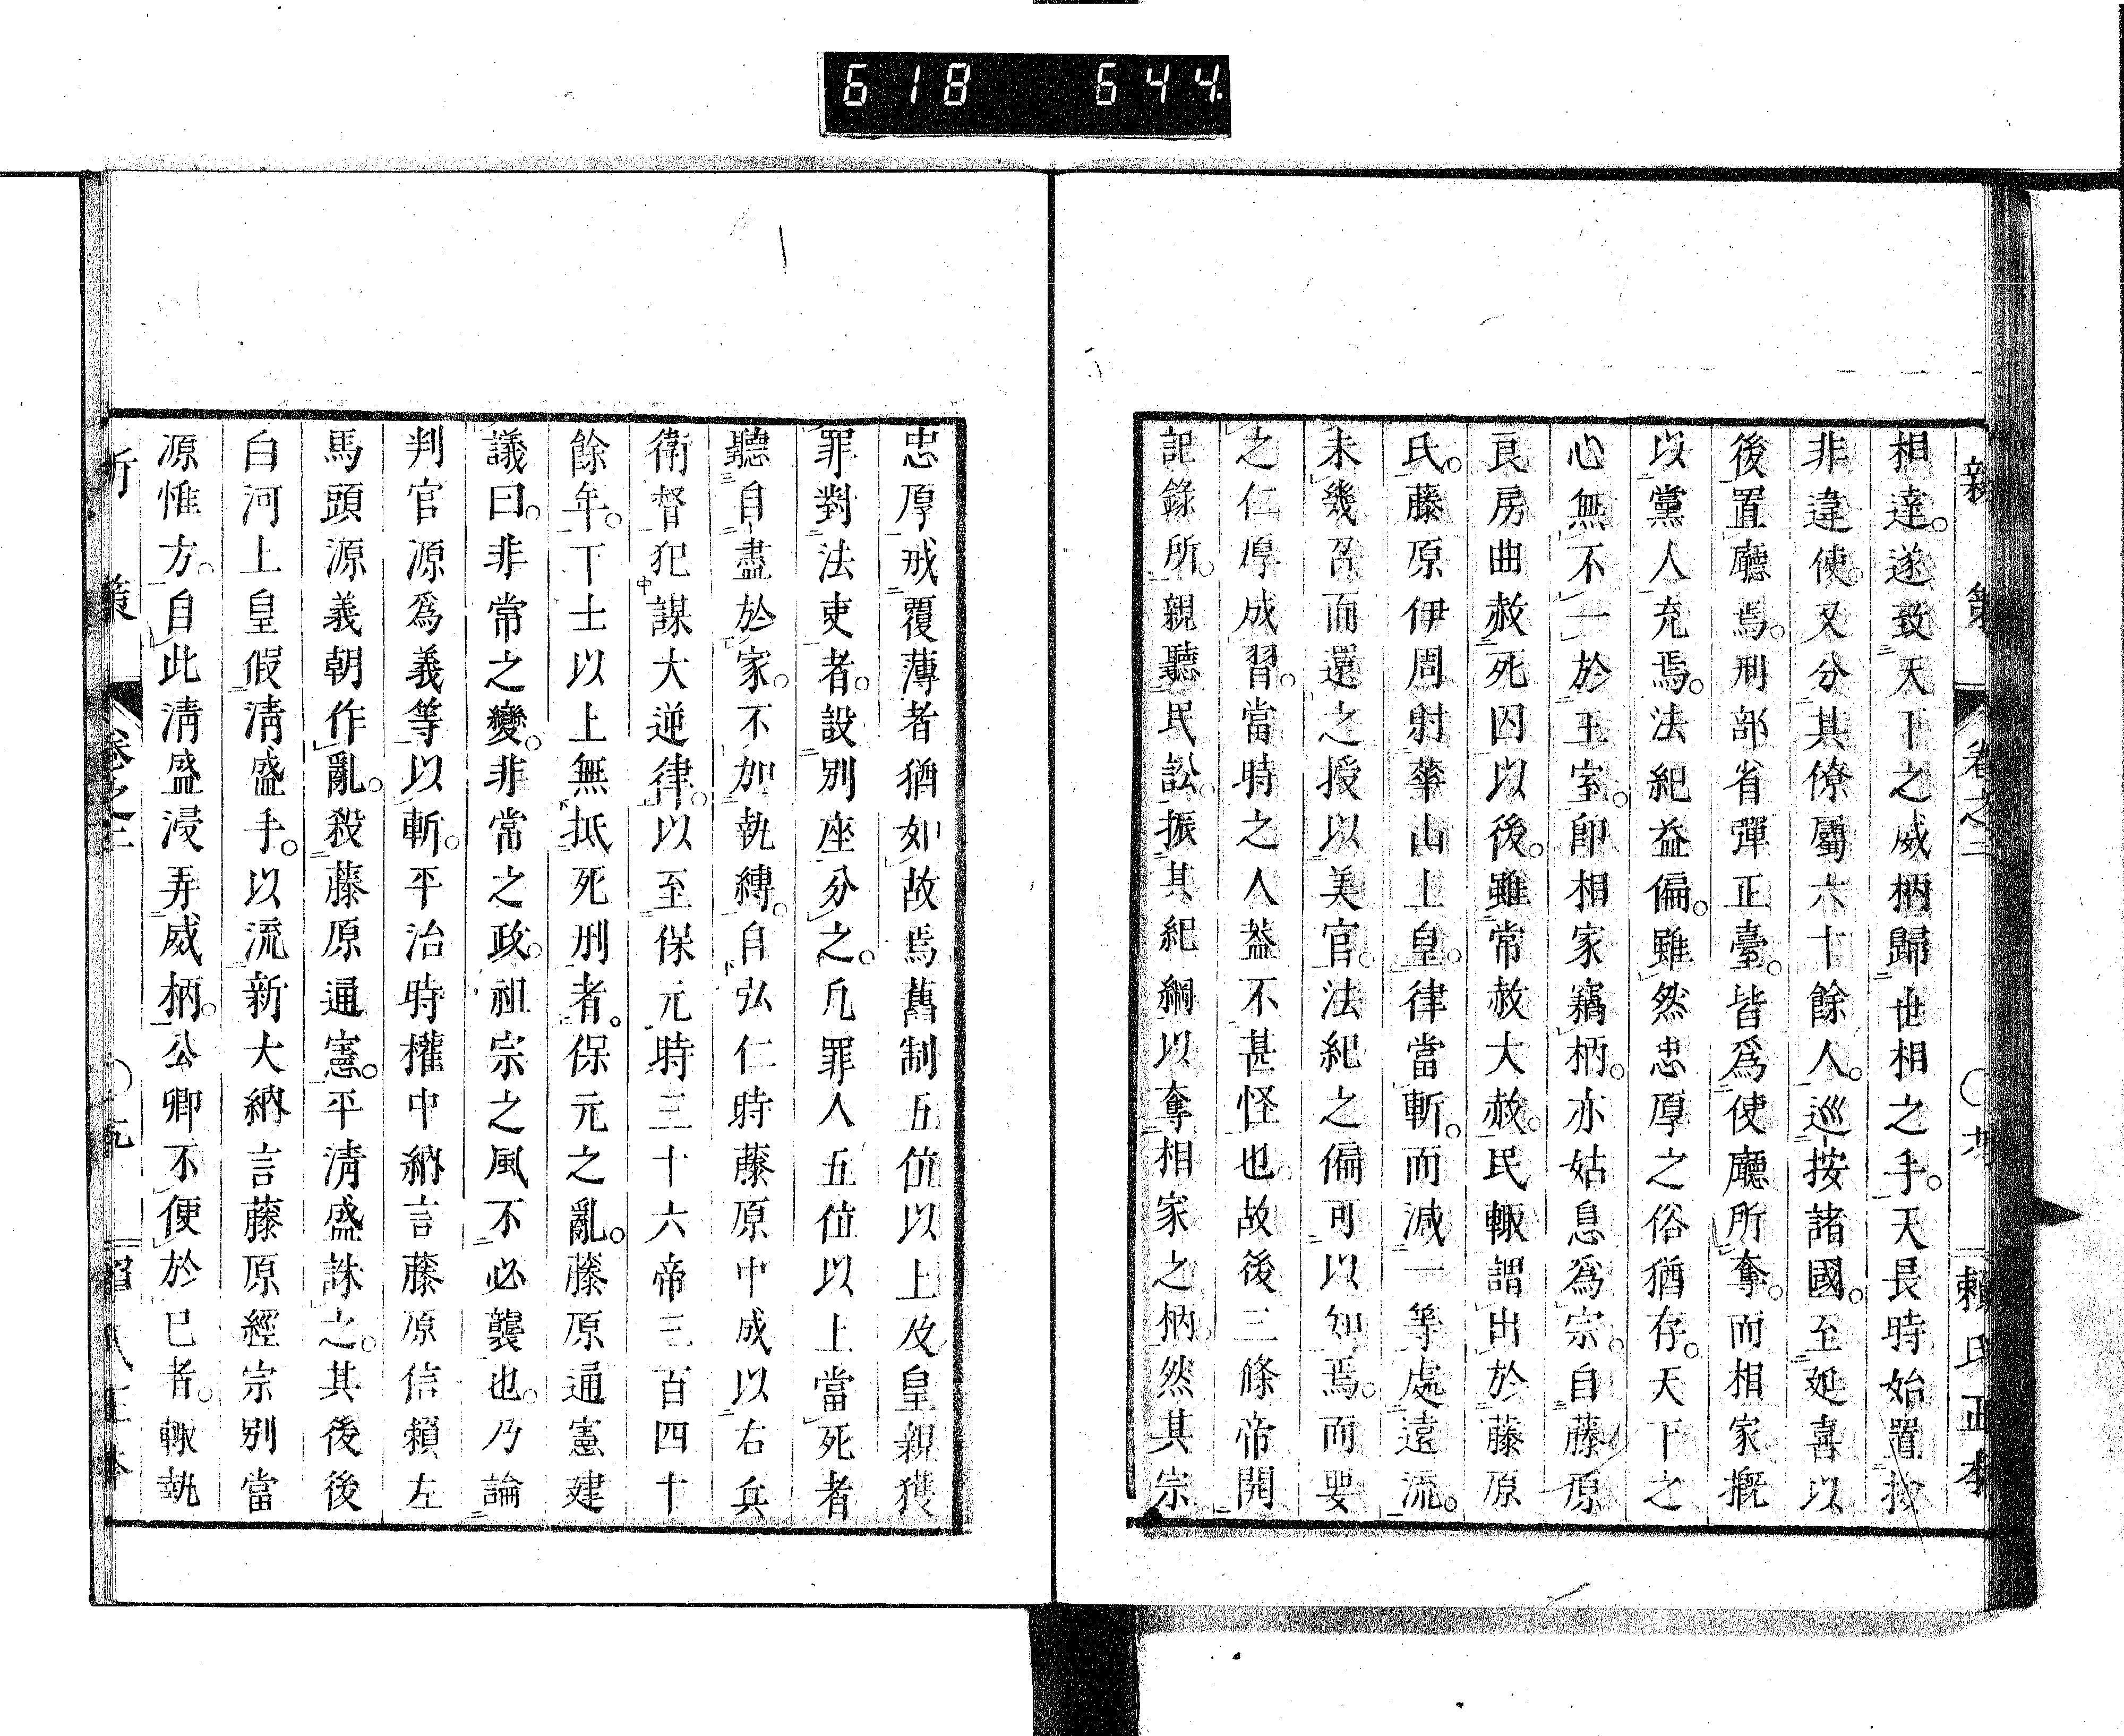 618 644
新策 卷之二 賴氏正本
相違。遂致天下之威柄歸世相之手。天長時始置撿
非違使。又分其僚屬六十餘人。巡按諸國。至延喜以
後置廳焉。刑部省彈正臺。皆爲使廳所奪。而相家概
以黨人充焉。法紀益偏。雖然忠厚之俗猶存。天下之
心無不一於王室。卽相家竊柄。亦姑息爲宗。自藤原
良房曲赦死囚以後。雖常赦大赦。民輙謂出於藤原
氏。藤原伊周射華山上皇。律當斬。而減一等處遠流。
未幾召而還之授以美官。法紀之偏可以知焉。而要
之仁厚成習。當時之人葢不甚怪也。故後三條帝開
記錄所。親聽民訟。振其紀綱以奪相家之柄。然其宗
忠厚戒覆薄者猶如故焉舊制五位以上及皇親獲
罪對法吏者。設別座分之。凡罪人五位以上當死者
聽自盡於家。不加執縛。自弘仁時藤原中成以右兵
衛督犯謀大逆律。以至保元時三十六帝三百四十
餘年。下士以上無抵死刑者。保元之亂。藤原通憲建
議曰。非常之變。非常之政。祖宗之風不必襲也。乃論
判官源爲義等以斬。平治時權中納言藤原信賴左
馬頭源義朝作亂。殺藤原通憲。平淸盛誅之。其後後
白河上皇假淸盛手。以流新大納言藤原經宗別當
源惟方。自此淸盛浸弄威柄。公卿不便於已者。輙執
策 卷之二